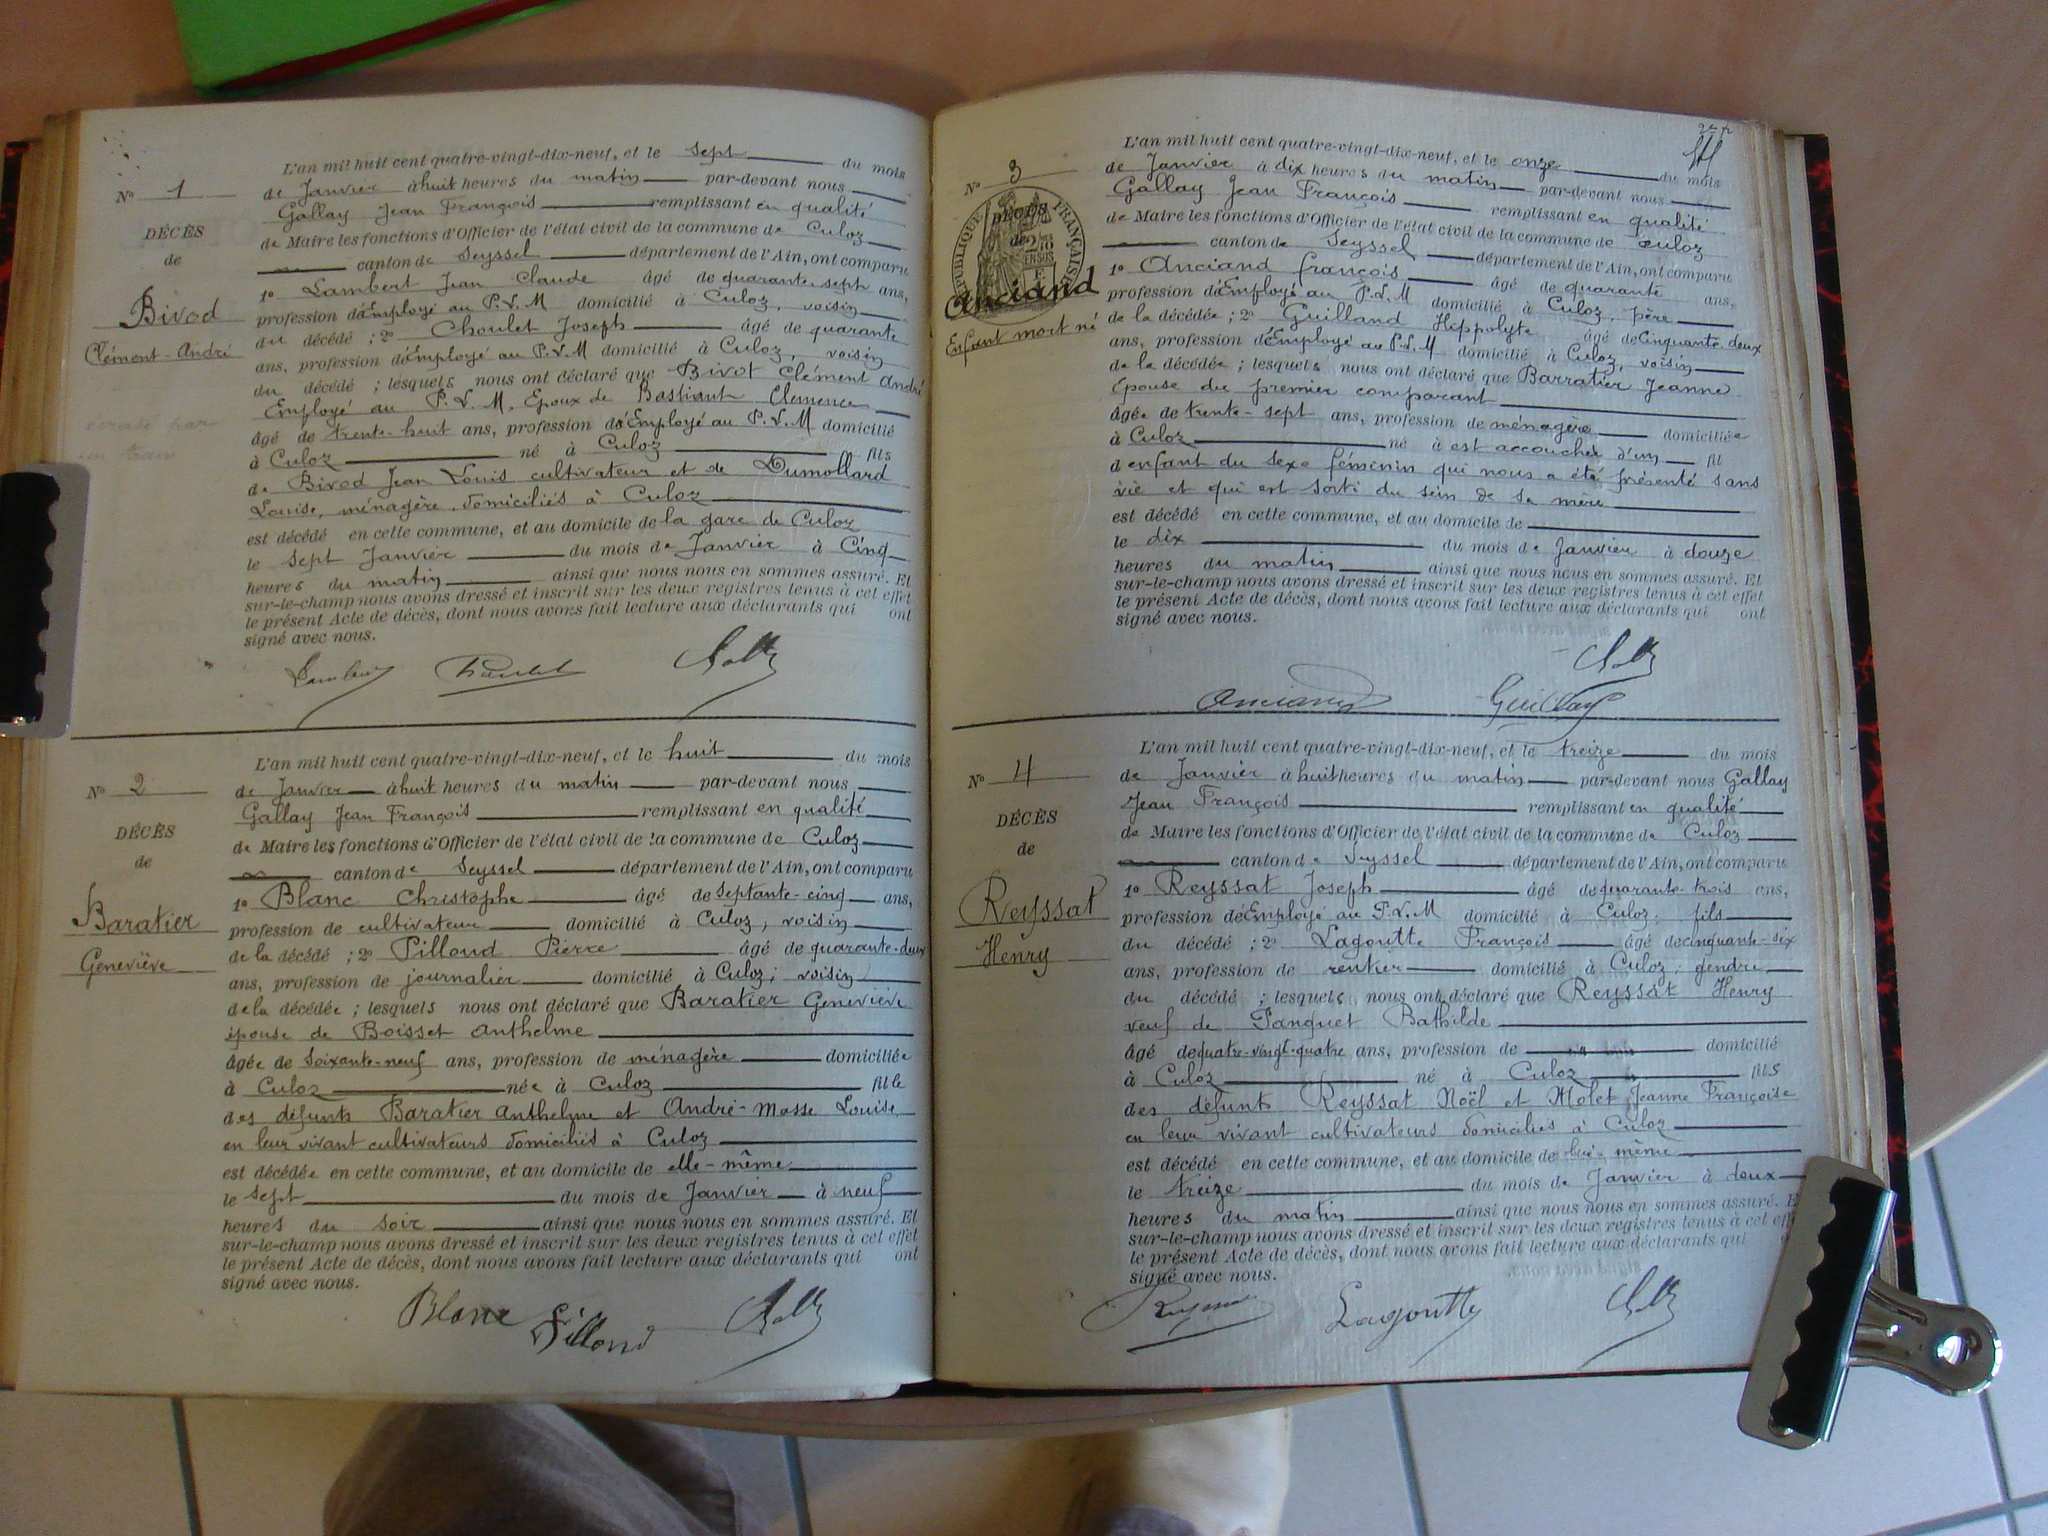 L'an mil huit cent quatre-vingt-dix-neuf, et le sept du mois
N° 1
de Janvier à huit heures du matin par-devant nous
Gallay Jean François remplissant en qualité
DÉCÈS
de Maire les fonctions d'Officier de l'état civil de la commune de Culoz
de
canton de Seyssel département de l'Ain, ont comparu
1° Lambert Jean Claude âgé de quarante-sept ans,
Bivod
profession d'Employé au P.L.M domicilié à Culoz, voisin
Clément-André
du décédé ; 2° Choulet Joseph âgé de quarante
ans, profession d'Employé au P.L.M domicilié à Culoz, voisin
du décédé ; lesquels nous ont déclaré que Bivot Clément André
Employé au P.L.M. Epoux de Bastiant Clemence
écrasé par
un train
âgé de trente-huit ans, profession d'Employé au P.L.M domicilié
à Culoz né à Culoz fils
de Bivod Jean Louis cultivateur et de Dumollard
Louise, ménagère, domiciliés à Culoz
est décédé en cette commune, et au domicile de la gare de Culoz
le sept Janvier du mois de Janvier à Cinq
heures du matin ainsi que nous nous en sommes assuré. Et
sur-le-champ nous avons dressé et inscrit sur les deux registres tenus à cet effet
le présent Acte de décès, dont nous avons fait lecture aux déclarants qui ont
signé avec nous.
Lambert Choulet
L'an mil huit cent quatre-vingt-dix-neuf, et le huit du mois
N° 2
de Janvier à huit heures du matin par-devant nous
Gallay Jean François remplissant en qualité
DÉCÈS
de Maire les fonctions d'Officier de l'état civil de la commune de Culoz
de
canton de Seyssel département de l'Ain, ont comparu
1° Blanc Christophe âgé de septante-cinq ans,
Baratier
profession de cultivateur domicilié à Culoz, voisin
de la décédé ; 2° Pilloud Pierre âgé de quarante-deux
Geneviève
ans, profession de journalier domicilié à Culoz; voisin
de la décédée ; lesquels nous ont déclaré que Baratier Geneviève
épouse de Boisset Anthelme
âgée de soixante-neuf ans, profession de ménagère domiciliée
à Culoz née à Culoz fille
des défunts Baratier Anthelme et André-Masse Louise
en leur vivant cultivateurs domiciliés à Culoz
est décédée en cette commune, et au domicile de elle-même
le sept du mois de Janvier à neuf
heures du soir ainsi que nous nous en sommes assuré. Et
sur-le-champ nous avons dressé et inscrit sur les deux registres tenus à cet effet
le présent Acte de décès, dont nous avons fait lecture aux déclarants qui ont
signé avec nous.
Blanc Pilloud
L'an mil huit cent quatre-vingt-dix-neuf, et le onze du mois
N° 3
de Janvier à dix heures du matin par-devant nous
Gallay Jean François remplissant en qualité
RÉPUBLIQUE FRANÇAISE
de Maire les fonctions d'Officier de l'état civil de la commune de Culoz
canton de Seyssel département de l'Ain, ont comparu
1° Anciand François âgé de quarante ans,
Anciand
profession d'Employé au P.L.M domicilié à Culoz, père
Enfant mort né
de la décédée ; 2° Guilland Hippolyte âgé de Cinquante-deux
ans, profession d'Employé au P.L.M domicilié à Culoz, voisin
de la décédée ; lesquels nous ont déclaré que Barratier Jeanne
épouse du premier comparant
âgée de trente-sept ans, profession de ménagère domiciliée
à Culoz né à est accouchée d'un fil
d enfant du sexe féminin qui nous a été présenté sans
vie et qui est sorti du sein de sa mère
est décédé en cette commune, et au domicile de
le dix du mois de Janvier à douze
heures du matin ainsi que nous nous en sommes assuré. Et
sur-le-champ nous avons dressé et inscrit sur les deux registres tenus à cet effet
le présent Acte de décès, dont nous avons fait lecture aux déclarants qui ont
signé avec nous.
Anciand
L'an mil huit cent quatre-vingt-dix-neuf, et le treize du mois
N° 4
de Janvier à huit heures du matin par-devant nous Gallay
Jean François remplissant en qualité
DÉCÈS
de Maire les fonctions d'Officier de l'état civil de la commune de Culoz
de
canton de Seyssel département de l'Ain, ont comparu
1° Reyssat Joseph âgé de quarante-trois ans,
Reyssat
profession d'Employé au P.L.M domicilié à Culoz; fils
du décédé ; 2° Lagoutte François âgé de cinquante-six
Henry
ans, profession de rentier domicilié à Culoz; gendre
du décédé ; lesquels nous ont déclaré que Reyssat Henry
veuf de Panquet Bathilde
âgé de quatre-vingt-quatre ans, profession de domicilié
à Culoz né à Culoz fils
des défunts Reyssat Noël et Molet Jeanne Françoise
en leur vivant cultivateurs domiciliés à Culoz
est décédé en cette commune, et au domicile de lui-même
le treize du mois de Janvier à deux
heures du matin ainsi que nous nous en sommes assuré. E
sur-le-champ nous avons dressé et inscrit sur les deux registres tenus à cet eff
le présent Acte de décès, dont nous avons fait lecture aux déclarants qui
signé avec nous.
Lagoutte